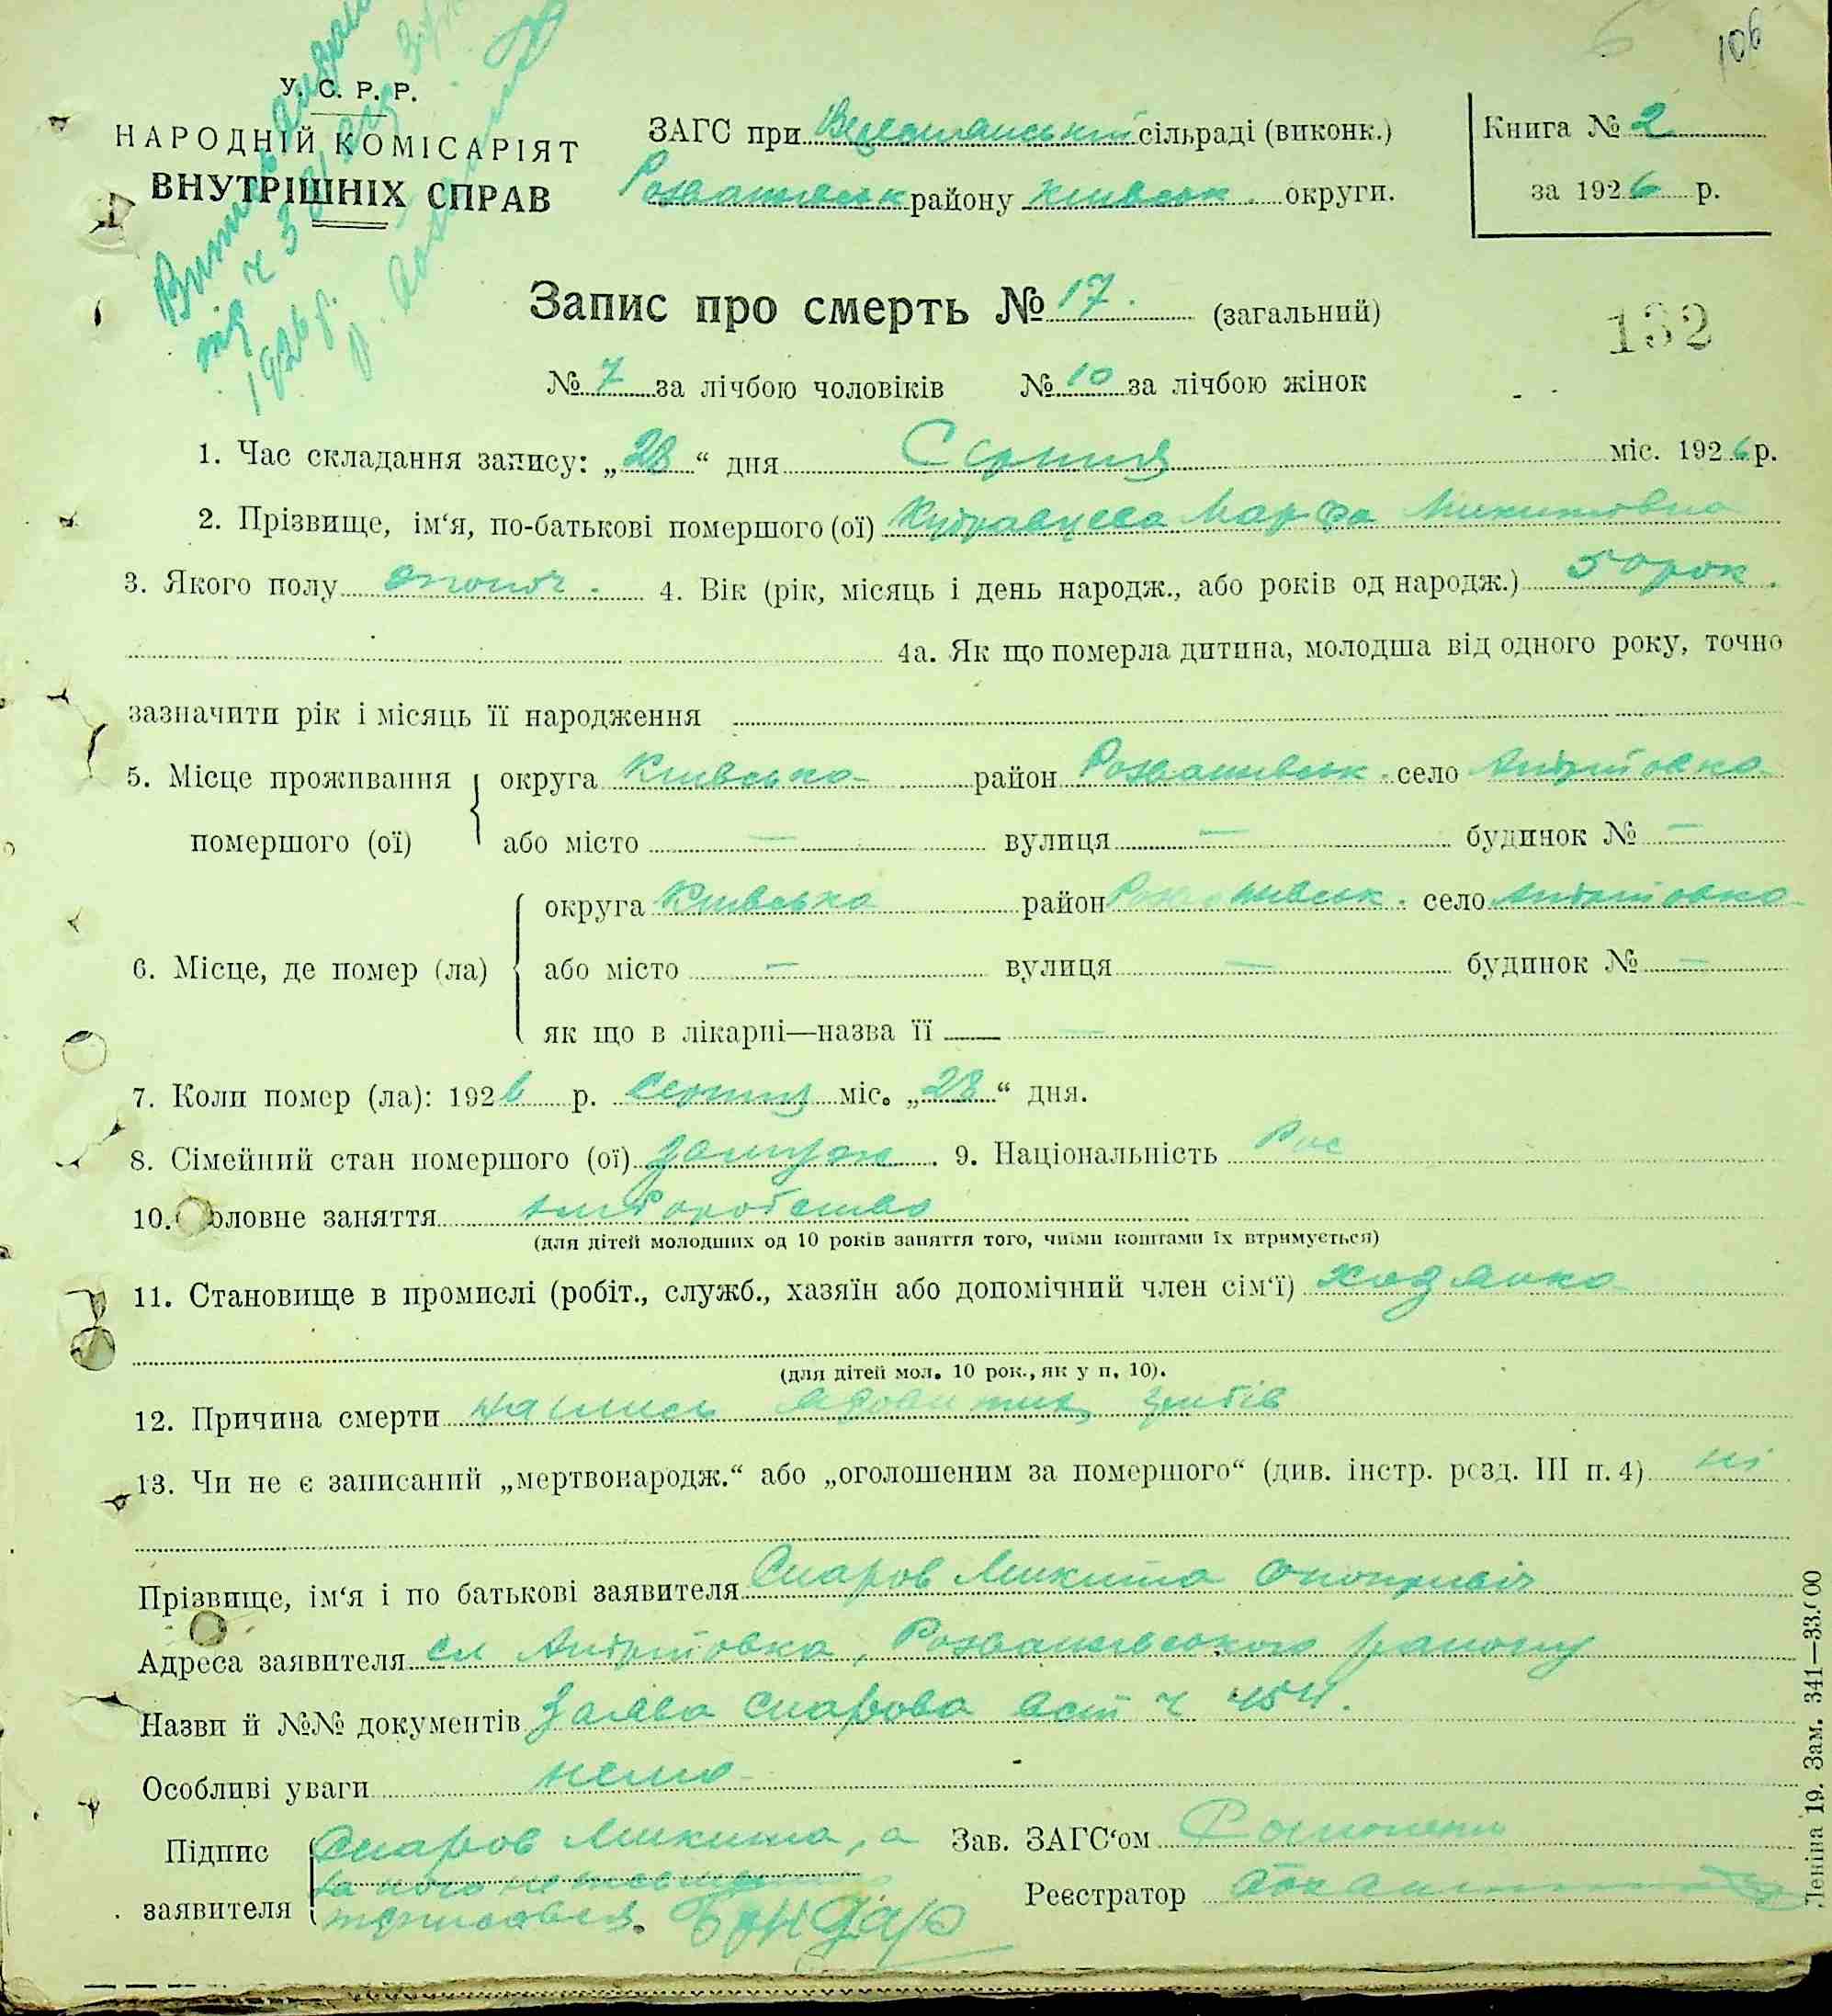 106
У. С. Р. Р.
НАРОДНІЙ КОМІСАРІЯТ
ВНУТРІШНІХ СПРАВ
ЗАГС при сільраді (виконк.)
Розважівськ району Київськ. округи.
Книга № 2
за 1926 р.
1926 р.
Запис про смерть № 17. (загальний)
132
№ 7 за лічбою чоловіків № 10 за лічбою жінок
1. Час складання запису: „28“ дня Серпня міс. 1926 р.
2. Прізвище, ім‘я, по-батькові помершого (ої) Кудравцева Марфа Микитовна
3. Якого полу жіноч. 4. Вік (рік, місяць і день народж., або років од народж.) 50 рок.
4а. Як що померла дитина, молодша від одного року, точно
зазначити рік і місяць її народження
5. Місце проживання округа Київська район Розважівськ. село Андріївка
помершого (ої) або місто — вулиця — будинок № —
округа Київська район Розважівськ. село Андріївка
6. Місце, де помер (ла) або місто — вулиця — будинок № —
як що в лікарні—назва її —
7. Коли помер (ла): 1926 р. Серпня міс. „28“ дня.
8. Сімейний стан помершого (ої) замужн. 9. Національність Рос
10. Головне заняття хліборобство
(для дітей молодших од 10 років заняття того, чиїми коштами їх втримується)
11. Становище в промислі (робіт., служб., хазяїн або допомічний член сім‘ї) хозяйка
(для дітей мол. 10 рок., як у п. 10).
12. Причина смерти грибів
13. Чи не є записаний „мертвонародж.“ або „оголошеним за помершого“ (див. інстр. розд. III п. 4) ні
Прізвище, ім‘я і по батькові заявителя Микита
Адреса заявителя сл Андріївка, Розважівського району
Назви й №№ документів Заява ч 454.
Особливі уваги нема
Підпис Микита, а Зав. ЗАГС‘ом
заявителя Бондар Реєстратор
Леніна 19. Зам. 341—33.000